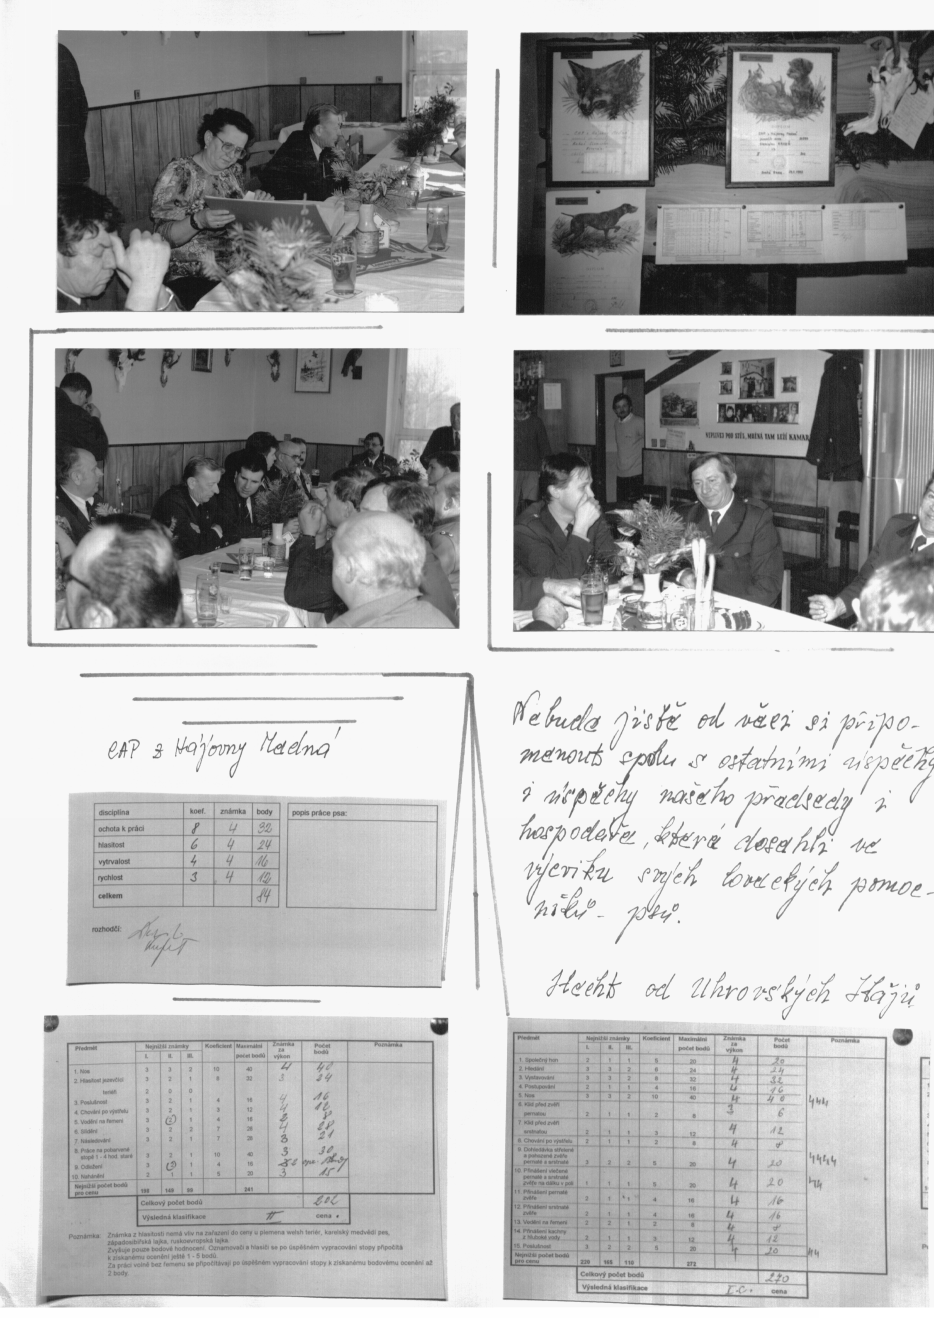 NEPLIVEJ POD STŮL, MOŽNÁ TAM LEŽÍ KAMARÁD
ČAP z Hájovny Mečná
Nebude jistě od věci si připo-
menout spolu s ostatními úspěchy
i úspěchy našeho předsedy i
hospodáře, které dosáhli ve
výcviku svých loveckých pomoc-
níků - psů.
Hecht od Uhrovských Hájů
disciplina koef. známka body popis práce psa:
ochota k práci 8 4 32
hlasitost 6 4 24
vytrvalost 4 4 16
rychlost 3 4 12
celkem 84
rozhodčí:
Předmět Nejnižší známky Koeficient Maximální počet bodů Známka za výkon Počet bodů Poznámka
I. II. III.
1. Nos 3 3 2 10 40 4 40
2. Hlasitost jezevčíci 3 2 1 8 32 3 24
teriéři 2 0 0
3. Poslušnost 3 2 1 4 16 4 16
4. Chování po výstřelu 3 2 1 3 12 4 12
5. Vodění na řemeni 3 2 1 4 16 2 8
6. Slídění 3 2 2 7 28 4 28
7. Následování 3 2 1 7 28 3 21
8. Práce na pobarvené stopě 1 - 4 hod. staré 3 2 1 10 40 3 30
9. Odložení 3 1 4 16
10. Nahánění 2 1 1 5 20 3 15
Nejnižší počet bodů pro cenu 341
Celkový počet bodů
Výsledná klasifikace II cena
Poznámka: Známka z hlasitosti nemá vliv na zařazení do ceny u plemena welsh teriér, karelský medvědí pes,
západosibiřská lajka, ruskoevropská lajka.
Zvyšuje pouze bodové hodnocení. Oznamovači a hlasiči se po úspěšném vypracování stopy připočítá
k získanému ocenění ještě 1 - 5 bodů.
Za práci volno bez řemenu se připočítávají po úspěšném vypracování stopy k získanému bodovému ocenění až
2 body.
Předmět Nejnižší známky Koeficient Maximální počet bodů Známka za výkon Počet bodů Poznámka
I. II. III.
1. Společný hon 2 1 1 5 20 4 20
2. Hledání 3 3 2 6 24 4 24
3. Vystavování 3 3 2 8 32 4 32
4. Postupování 2 1 1 4 16 4 16
5. Nos 3 3 2 10 40 4 40
6. Klid před zvěří pernatou 2 1 1 2 8 3 6
7. Klid před zvěří srstnatou 2 1 1 3 12 4 12
8. Chování po výstřelu 2 1 1 2 8 4 8
9. Dohledávka střelené a pohozené zvěře pernaté a srstnaté 3 2 2 5 20 4 20
10. Přinášení vlečené pernaté a srstnaté zvěře na dálku v poli 1 1 1 5 20 4 20
11. Přinášení pernaté zvěře 1 1 4 16 4 16
12. Přinášení srstnaté zvěře 2 1 1 4 16 4 16
13. Vodění na řemeni 2 2 1 2 8 4 8
14. Přinášení kachny z hluboké vody 2 1 1 3 12 4 12
15. Poslušnost 3 2 1 5 20 4 20
Nejnižší počet bodů pro cenu 110 272
Celkový počet bodů 270
Výsledná klasifikace I.C. cena